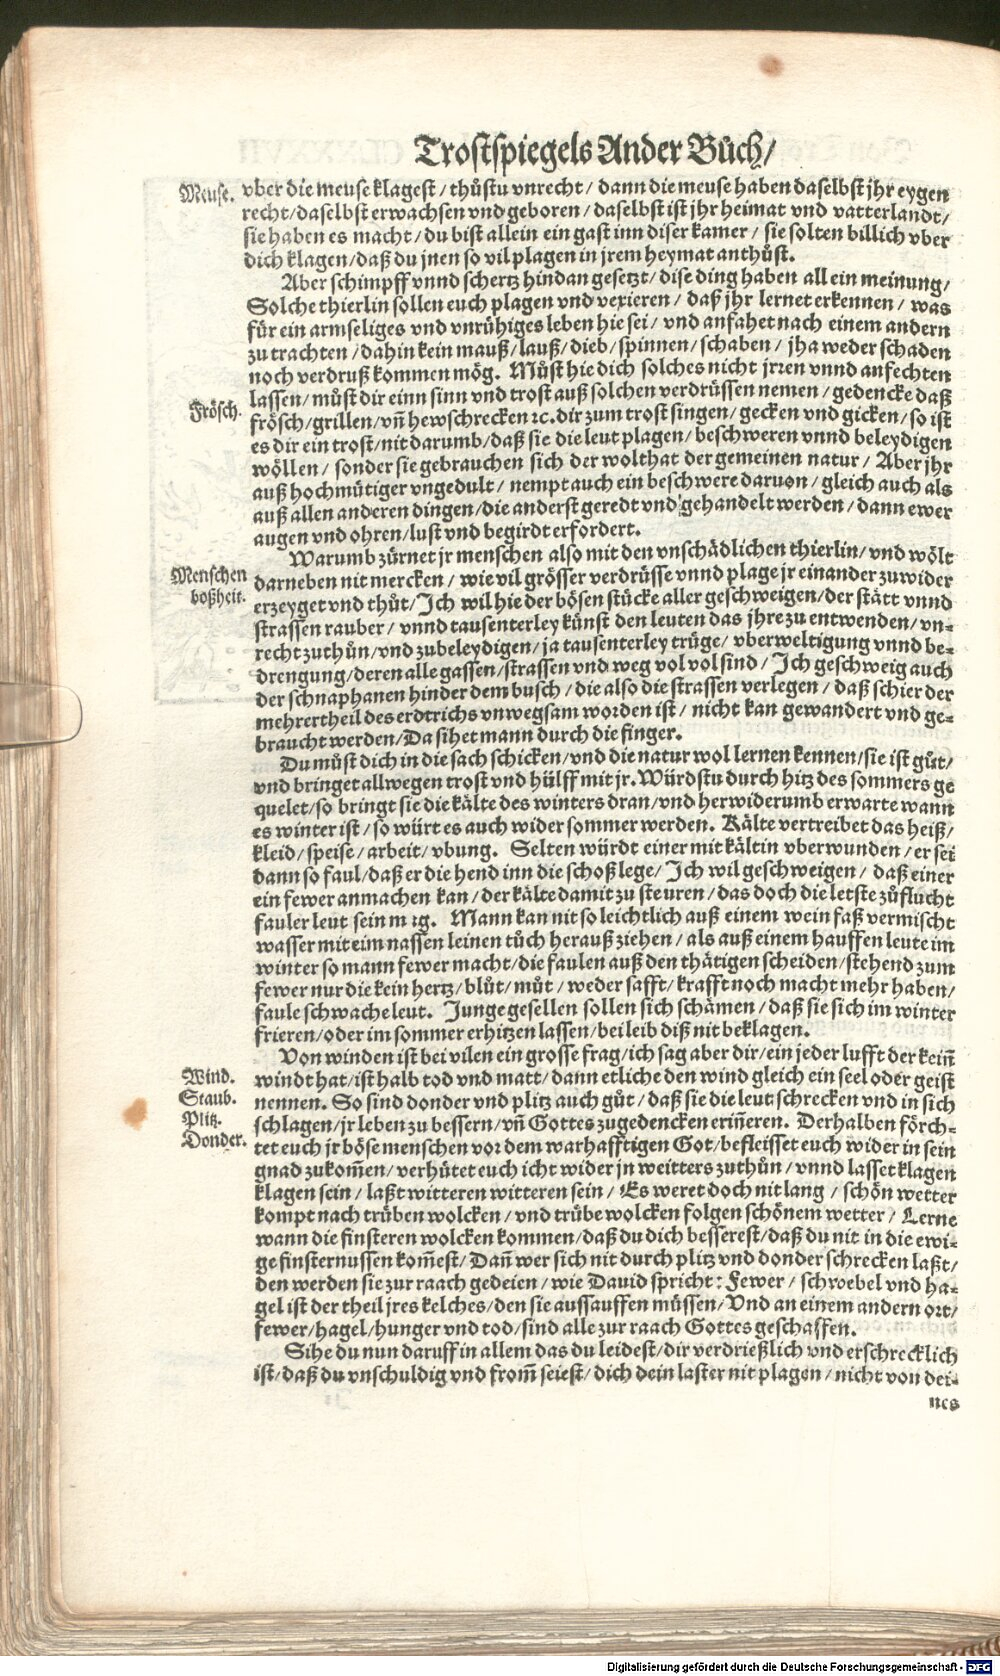 Trostspiegels Ander Bůch/
Meuse.
vber die meuse klagest/ thůstu vnrecht/ dann die meuse haben daselbst jhr eygen
recht/ daselbst erwachsen vnd geboren/ daselbst ist jhr heimat vnd vatterlandt/
sie haben es macht/ du bist allein ein gast inn diser kamer/ sie solten billich vber
dich klagen/ daß du jnen so vil plagen in jrem heymat anthůst.
Aber schimpff vnnd schertz hindan gesetzt/ dise ding haben all ein meinung/
Solche thierlin sollen euch plagen vnd vexieren/ daß jhr lernet erkennen/ was
für ein armseliges vnd vnrůhiges leben hie sei/ vnd anfahet nach einem andern
zu trachten/ dahin kein mauß/ lauß/ dieb/ spinnen/ schaben/ jha weder schaden
noch verdruß kommen mög. Můst hie dich solches nicht jrren vnnd anfechten
lassen/ můst dir einn sinn vnd trost auß solchen verdrüssen nemen/ gedencke daß
Frösch.
frösch/ grillen/ vn̄ hewschrecken ꝛc. dir zum trost singen/ gecken vnd gicken/ so ist
es dir ein trost/ nit darumb/ daß sie die leut plagen/ beschweren vnnd beleydigen
wöllen/ sonder sie gebrauchen sich der wolthat der gemeinen natur/ Aber jhr
auß hochmütiger vngedult/ nempt auch ein beschwere daruon/ gleich auch als
auß allen anderen dingen/ die anderst geredt vnd gehandelt werden/ dann ewer
augen vnd ohren/ lust vnd begirdt erfordert.
Warumb zürnet jr menschen also mit den vnschädlichen thierlin/ vnd wölt
Menschen
boßheit.
darneben nit mercken/ wie vil grösser verdrüsse vnnd plage jr einander zuwider
erzeyget vnd thůt/ Ich wil hie der bösen stücke aller geschweigen/ der stätt vnnd
strassen rauber/ vnnd tausenterley künst den leuten das jhre zu entwenden/ vn-
recht zuthůn/ vnd zubeleydigen/ ja tausenterley trüge/ vberweltigung vnnd be-
drengung/ deren alle gassen/ strassen vnd weg vol vol sind/ Ich geschweig auch
der schnaphanen hinder dem busch/ die also die strassen verlegen/ daß schier der
mehrertheil des erdtrichs vnwegsam worden ist/ nicht kan gewandert vnd ge-
braucht werden/ Da sihet mann durch die finger.
Du můst dich in die sach schicken/ vnd die natur wol lernen kennen/ sie ist gůt/
vnd bringet allwegen trost vnd hülff mit jr. Würdstu durch hitz des sommers ge
quelet/ so bringt sie die kälte des winters dran/ vnd herwiderumb erwarte wann
es winter ist/ so würt es auch wider sommer werden. Kälte vertreibet das heiß/
kleid/ speise/ arbeit/ vbung. Selten würdt einer mit kältin vberwunden/ er sei
dann so faul/ daß er die hend inn die schoß lege/ Ich wil geschweigen/ daß einer
ein fewer anmachen kan/ der kälte damit zu steuren/ das doch die letste zůflucht
fauler leut sein mag. Mann kan nit so leichtlich auß einem wein faß vermischt
wasser mit eim nassen leinen tůch herauß ziehen/ als auß einem hauffen leute im
winter so mann fewer macht/ die faulen auß den thätigen scheiden/ stehend zum
fewer nur die kein hertz/ blůt/ můt/ weder safft/ krafft noch macht mehr haben/
faule schwache leut. Junge gesellen sollen sich schämen/ daß sie sich im winter
frieren/ oder im sommer erhitzen lassen/ bei leib diß nit beklagen.
Von winden ist bei vilen ein grosse frag/ ich sag aber dir/ ein jeder lufft der kein̄
Wind.
Staub.
Plitz.
Donder.
windt hat/ ist halb tod vnd matt/ dann etliche den wind gleich ein seel oder geist
nennen. So sind donder vnd plitz auch gůt/ daß sie die leut schrecken vnd in sich
schlagen/ jr leben zu bessern/ vn̄ Gottes zugedencken erin̄eren. Derhalben förch-
tet euch jr böse menschen vor dem warhafftigen Got/ befleisset euch wider in sein
gnad zukom̄en/ verhütet euch icht wider jn weitters zuthůn/ vnnd lasset klagen
klagen sein/ laßt witteren witteren sein/ Es weret doch nit lang/ schön wetter
kompt nach trüben wolcken/ vnd trübe wolcken folgen schönem wetter/ Lerne
wann die finsteren wolcken kommen/ daß du dich besserest/ daß du nit in die ewi-
ge finsternussen kom̄est/ Dan̄ wer sich nit durch plitz vnd donder schrecken laßt/
den werden sie zur raach gedeien/ wie Dauid spricht: Fewer/ schwebel vnd ha-
gel ist der theil jres kelches/ den sie aussauffen müssen/ Vnd an einem andern ort/
fewer/ hagel/ hunger vnd tod/ sind alle zur raach Gottes geschaffen.
Sihe du nun daruff in allem das du leidest/ dir verdrießlich vnd erschrecklich
ist/ daß du vnschuldig vnd from̄ seiest/ dich dein laster nit plagen/ nicht von dei-
nes
Digitalisierung gefördert durch die Deutsche Forschungsgemeinschaft - DFG